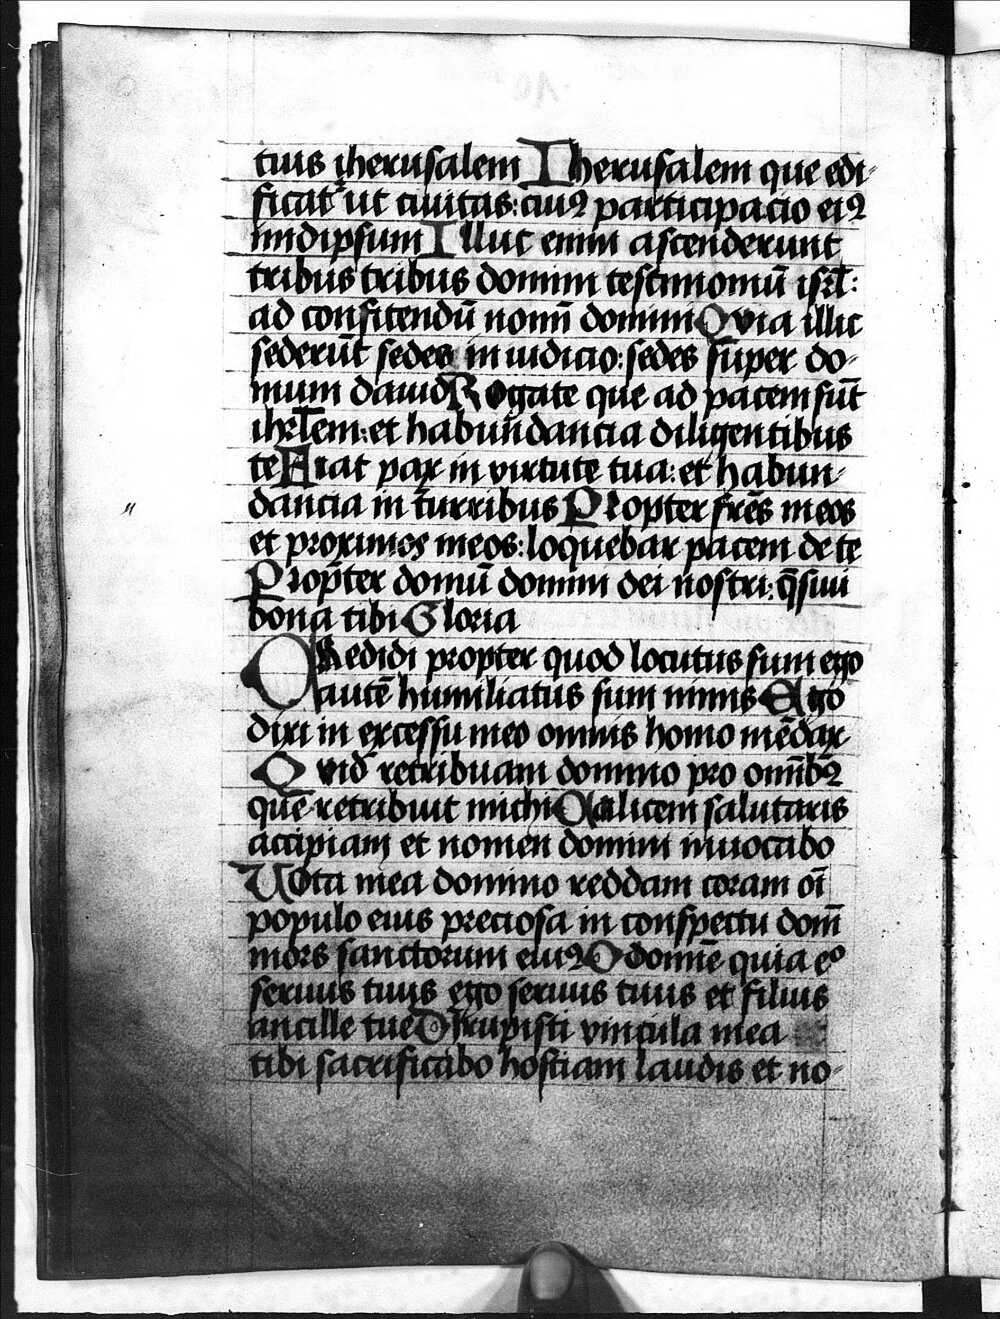 tuis iherusalem Iherusalem que edi-
ficat᷑ ut ciuitas: cuiꝰ participacio eiꝰ
inidipsum Illuc enim ascenderunt
tribus tribus domini testimoniū isrl̄:
ad confitendū nomī domini Qvia illic
sederūt sedes in iudicio: sedes super do-
mum dauid Rogate que ad pacem sūt
ihrlem: et habundancia diligentibus
te Fiat pax in virtute tua: et habun-
dancia in turribus Propter frēs meos
et proximos meos: loquebar pacem de te
Propter domū domini dei nostri: q̄siui
bona tibi Gloria
CRedidi propter quod locutus sum ego
autē humiliatus sum nimis Ego
dixi in excessu meo omnis homo mēdax
Qvid retribuam domino pro omībꝰ
que retribuit michi Calicem salutaris
accipiam et nomen domini inuocabo
Uota mea domino reddam coram oī
populo eius preciosa in conspectu domī
mors sanctorum eiuꝰ O domīe quia eº
seruus tuus ego seruus tuus et filius
ancille tue Dirupisti vincula mea
tibi sacrificabo hostiam laudis et no-